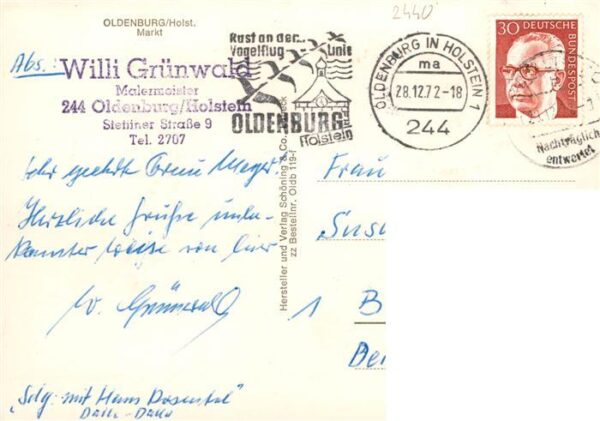 OLDENBURG/Holst.
Markt
2440
Abs.:
Willi Grünwald
Malermeister
244 Oldenburg/Holstein
Stettiner Straße 9
Tel. 2707
Rast an der..
Vogelflug Linie
OLDENBURG
Holstein
OLDENBURG IN HOLSTEIN 1
ma
28.12.72-18
244
30 DEUTSCHE BUNDESPOST
Nachträglich
entwertet
Sehr geehrte Frau Meyer!
Herzliche Grüße unbe-
kannter Weise von hier
W. Grünwald
"Sdg. mit Hans Rosental
Dalli-Dalli
Hersteller und Verlag Schöning & Co.
zz Bestellnr. Oldb 119-
Frau
"Susa
1 B